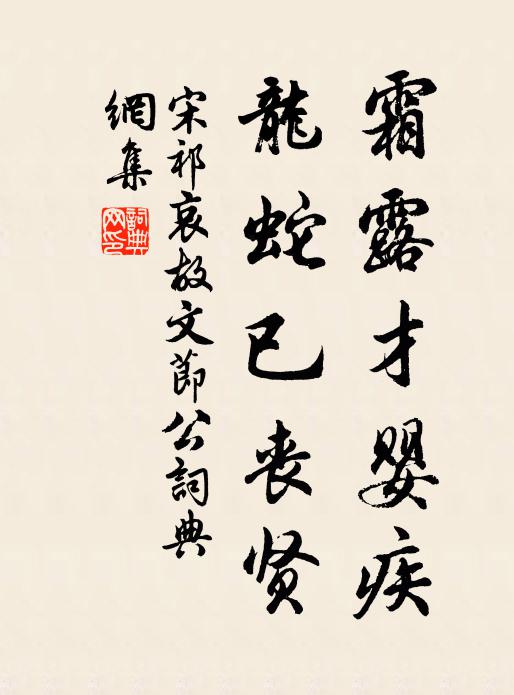 霜露才婴疾
龍蛇已丧贤
宋祁哀故文節公詞典
網集
詞典网印